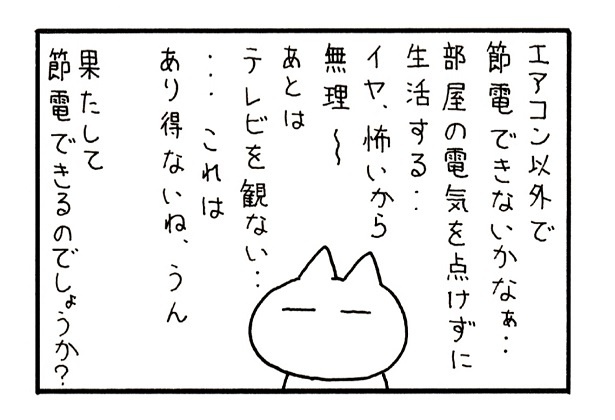 エアコン以外で
節電できないかなぁ‥
部屋の電気を点けずに
生活する‥
イヤ、怖いから
無理〜
あとは
テレビを観ない‥
… これは
あり得ないね、うん
果たして
節電できるのでしょうか？